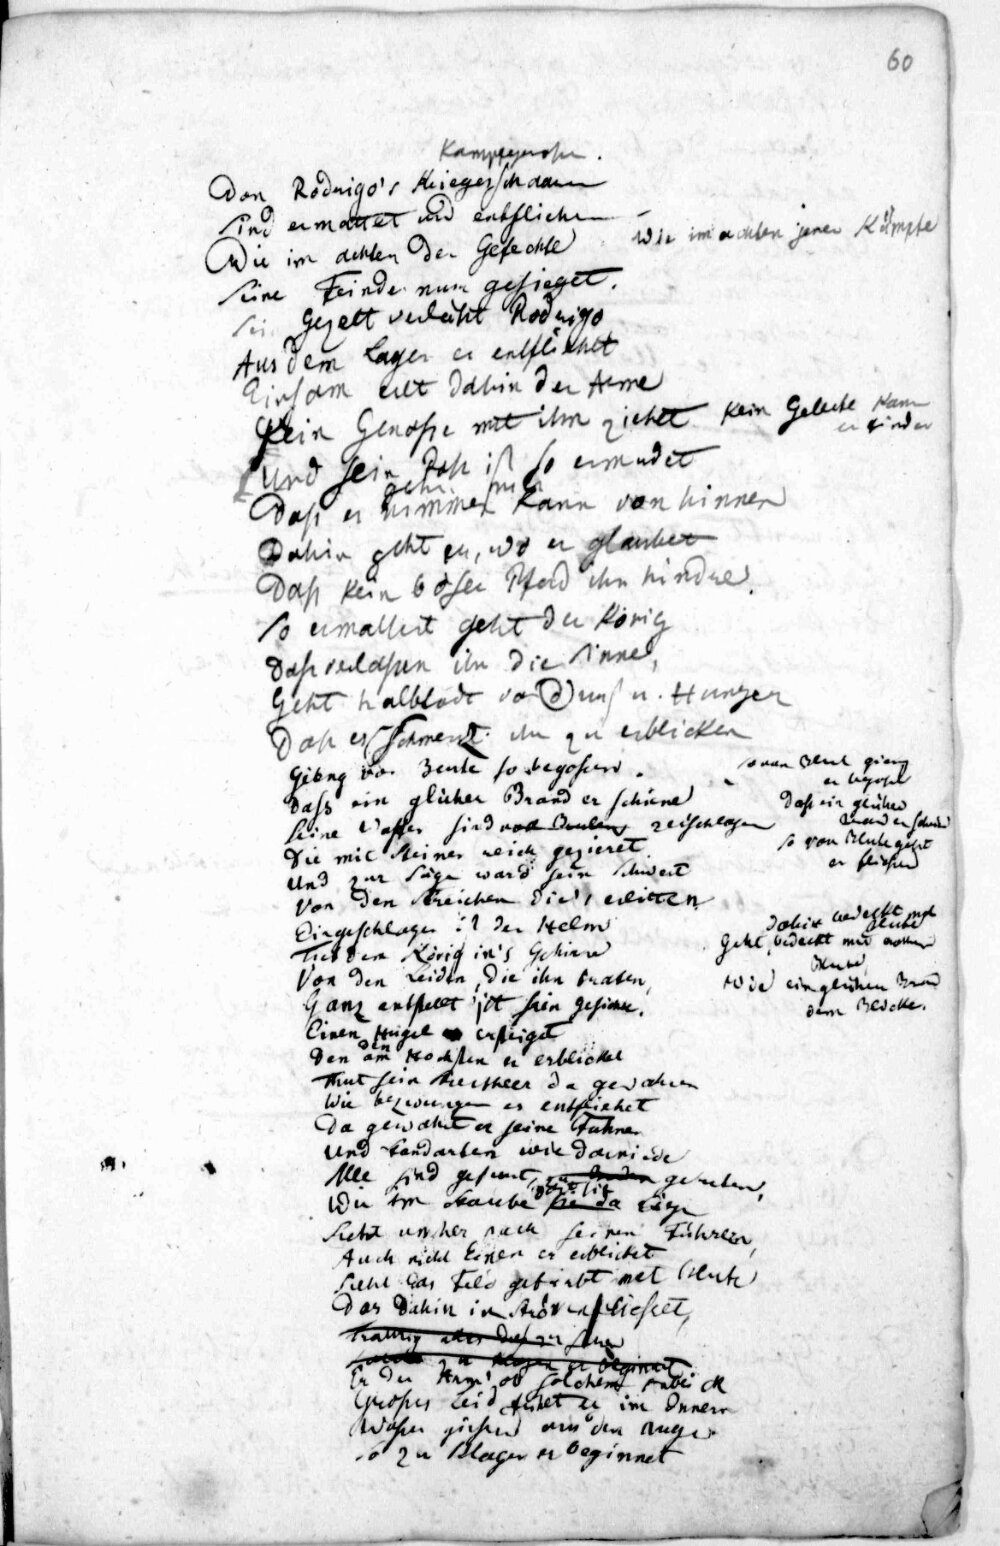 60
Kampfgenossen.
Don Rodrigo's Kriegerschaaren
Sind ermattet und entfliehen
Wie im achten der Gefechte
wie im achten jener Kämpfe
Seine Feinde nun gesieget.
Sein Gezelt verläßt Rodrigo
Aus dem Lager er entfliehet
Einsam eilt dahin der Arme
Kein Genosse mit ihm ziehet
Kein Geleite kann
er finden
Und sein Roß ist so ermüdet
Daß er nimmer kann von hinnen
Dahin geht er, wo er glaubet
Daß kein böser Pfad ihn hindre.
So ermattet geht der König
Daß verlaßen ihn die Sinne,
Geht halbtodt vor Durst u. Hunger
Daß es schmerzt ihn zu erblicken
Gieng von Blute so begoßen.
so von Blut gieng
er begoßen
Daß ein glüher Brand er schiene
Daß ein glüher
Brand er schiene
Seine Waffen sind von Beulen zerschlagen
so von Blute geht
er
Die mit Steinen reich gezieret
Und zur Säge ward sein Schwert
Von den Streichen die's erlitten
Eingeschlagen ist der Helm
dahin bedeckt mit
Blute
Tief dem König in's Gehirne
Geht, bedeckt mit rothem
Blute,
Von den Leiden, die ihn traten,
Wie ein glüher Brand
dem Blicke.
Ganz entstellt ist sein Gesichte.
Einen Hügel er ersteiget
Den am Höchsten er erblicket
Thut sein Kriegsheer da gewahren
Wie bezwungen es entfliehet
Da gewahrt er seine Fahnen
Und Standarten wie darnieder
Alle sind gestreut, zu Boden getreten,
Wie im Staube sie da liegen
Sieht umher nach seinen Führern,
Auch nicht Einen er erblicket
Sieht das Feld gefärbt mit Blute
Das dahin in Strömen fließet,
Traurig alles dieß zu sehen
zu klagen er beginnet
Er der Arm' ob solchem Anblick
Großes Leid fühlet er im Innern
Waßer gießend aus den Augen
So zu klagen er beginnet